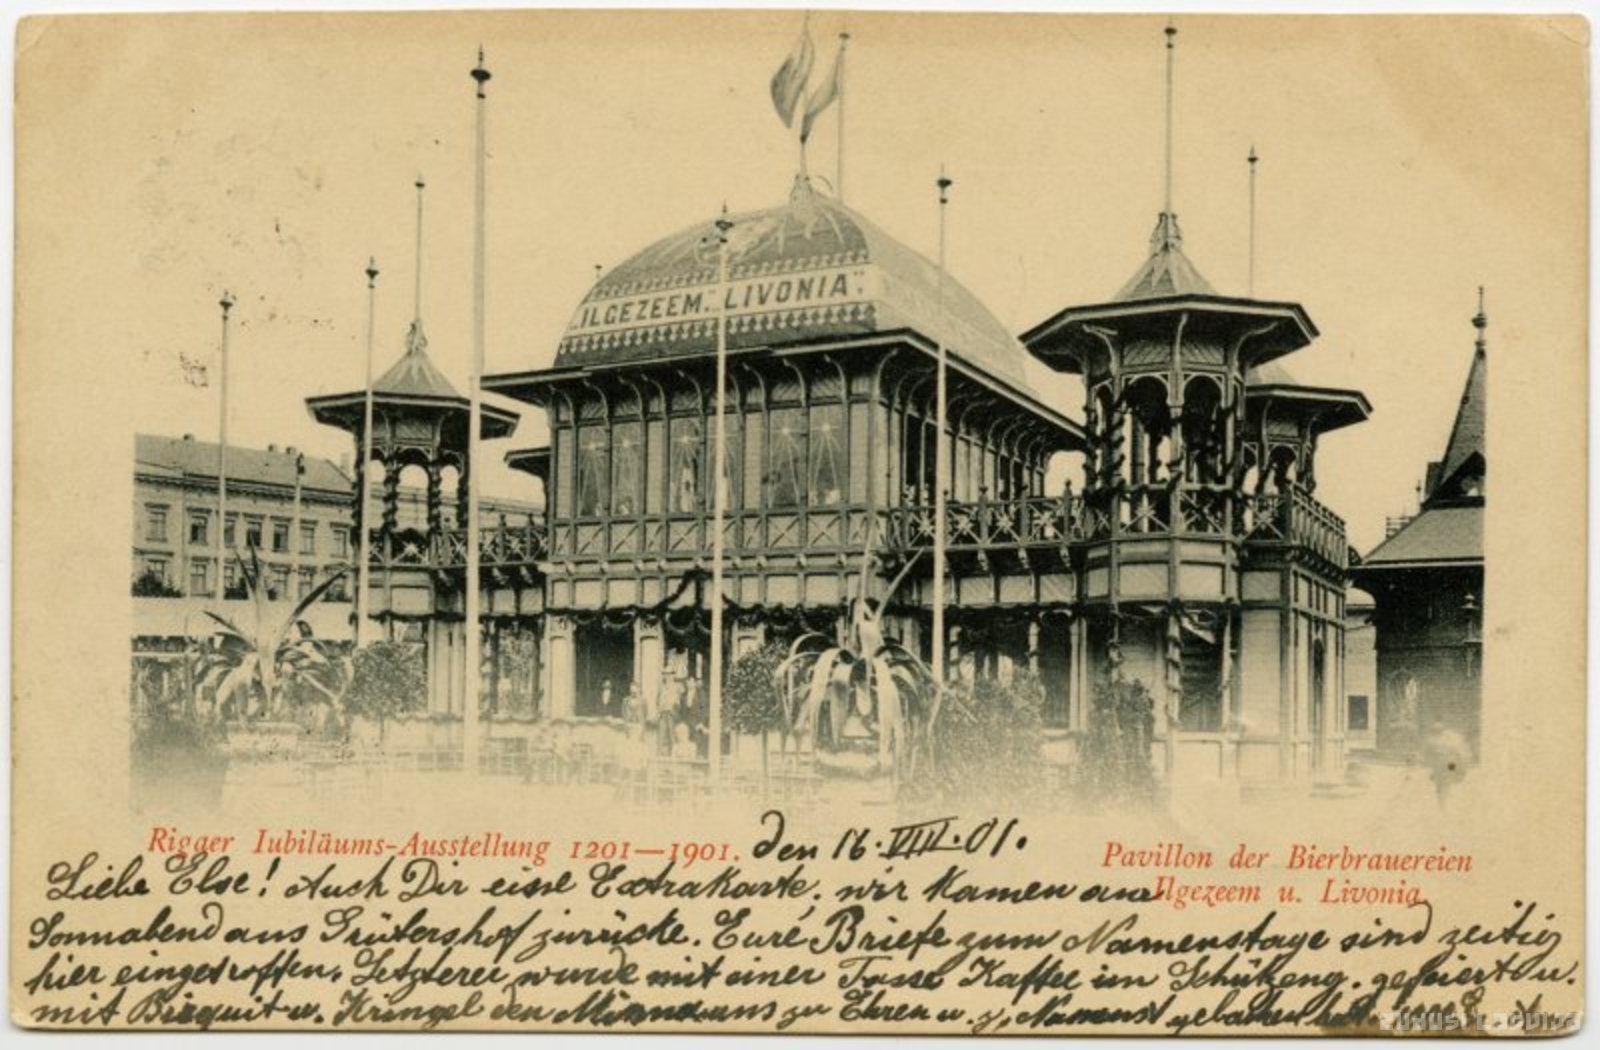 „ILGEZEEM“ „LIVONIA“
Rigaer Iubiläums-Ausstellung 1201—1901. den 16. VIII. 01.
Pavillon der Bierbrauereien
Ilgezeem u. Livonia.
Liebe Else! Auch Dir eine Extrakarte, wir kamen am
Sonnabend aus Grütershof zurück. Eure Briefe zum Namenstage sind zeitig
hier eingetroffen. Letzterer wurde mit einer Tasse Kaffee im Schützeng. gefeiert u.
mit Bisquit u. Kringel den Minna uns zu Ehren u. z. Namenst gebacken